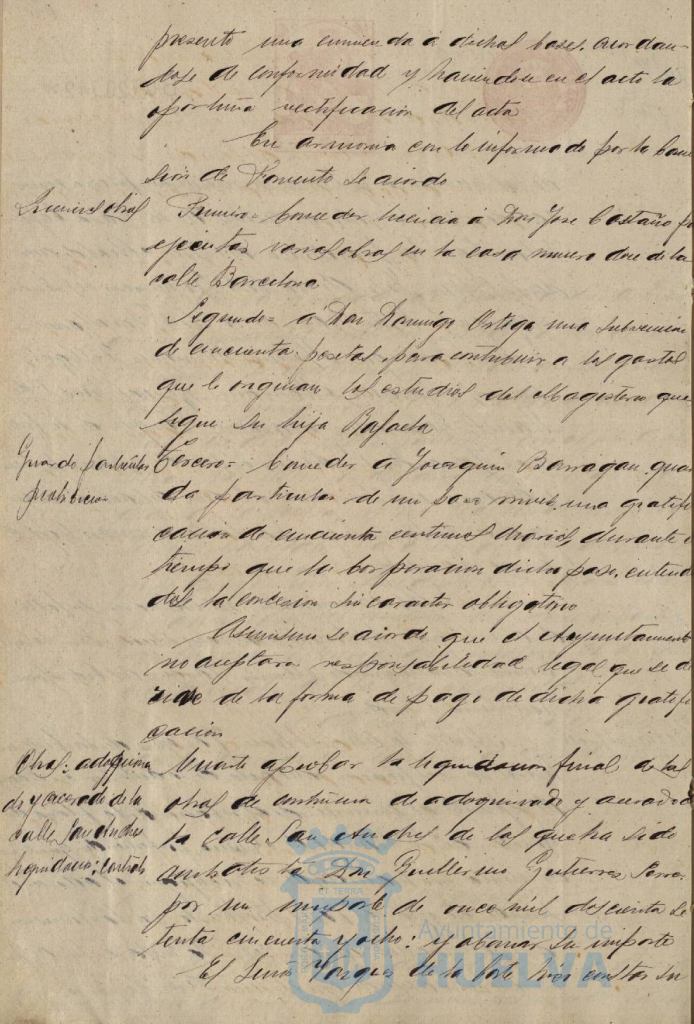 presento una enmienda á dichas bases. acordan-
dose de conformidad y haciendose en el acto la
oportuna rectificacion del acta
En armonia con lo informado por la Comi-
sion de Fomento se acordo
Licencias obras
Primero= Conceder licencia á Don Jose Castaño pa
ejecutar varias obras en la casa numero doce de la
calle Barcelona
Segundo= á Don Domingo Ortega una subvencion
de cincuenta pesetas para contribuir a los gastos
que le originan los estudios del Magisterio que
sigue su hija Rafaela
Guarda particular
gratificacion
Tercero= Conceder á Joaquin Barragan guar
da particular de un paso nivel, una gratifi
cacion de cincuenta centimos diarios, durante e
tiempo que la Corporacion dicho paso, entend
dose la concesion sin caracter obligatorio
Asimismo se acordo que el Ayuntamiento
no aceptara responsabilidad legal que se de
rive de la forma de pago de dicha gratifi
cacion
Obras: adoquina
do y acerado de la
calle San Andres
liquidacion: contrata
Cuarto aprobar la liquidacion final de las
obras de adoquinado y acerado d
la calle San Andres de las que ha sido
contratista Don Guillermo Gutierrez
por un importe de once mil doscienta se
tenta cincuenta y ocho: y abonar su importe
El Señor Vazquez de la Corte hizo constar su
Ayuntamiento de
HUELVA